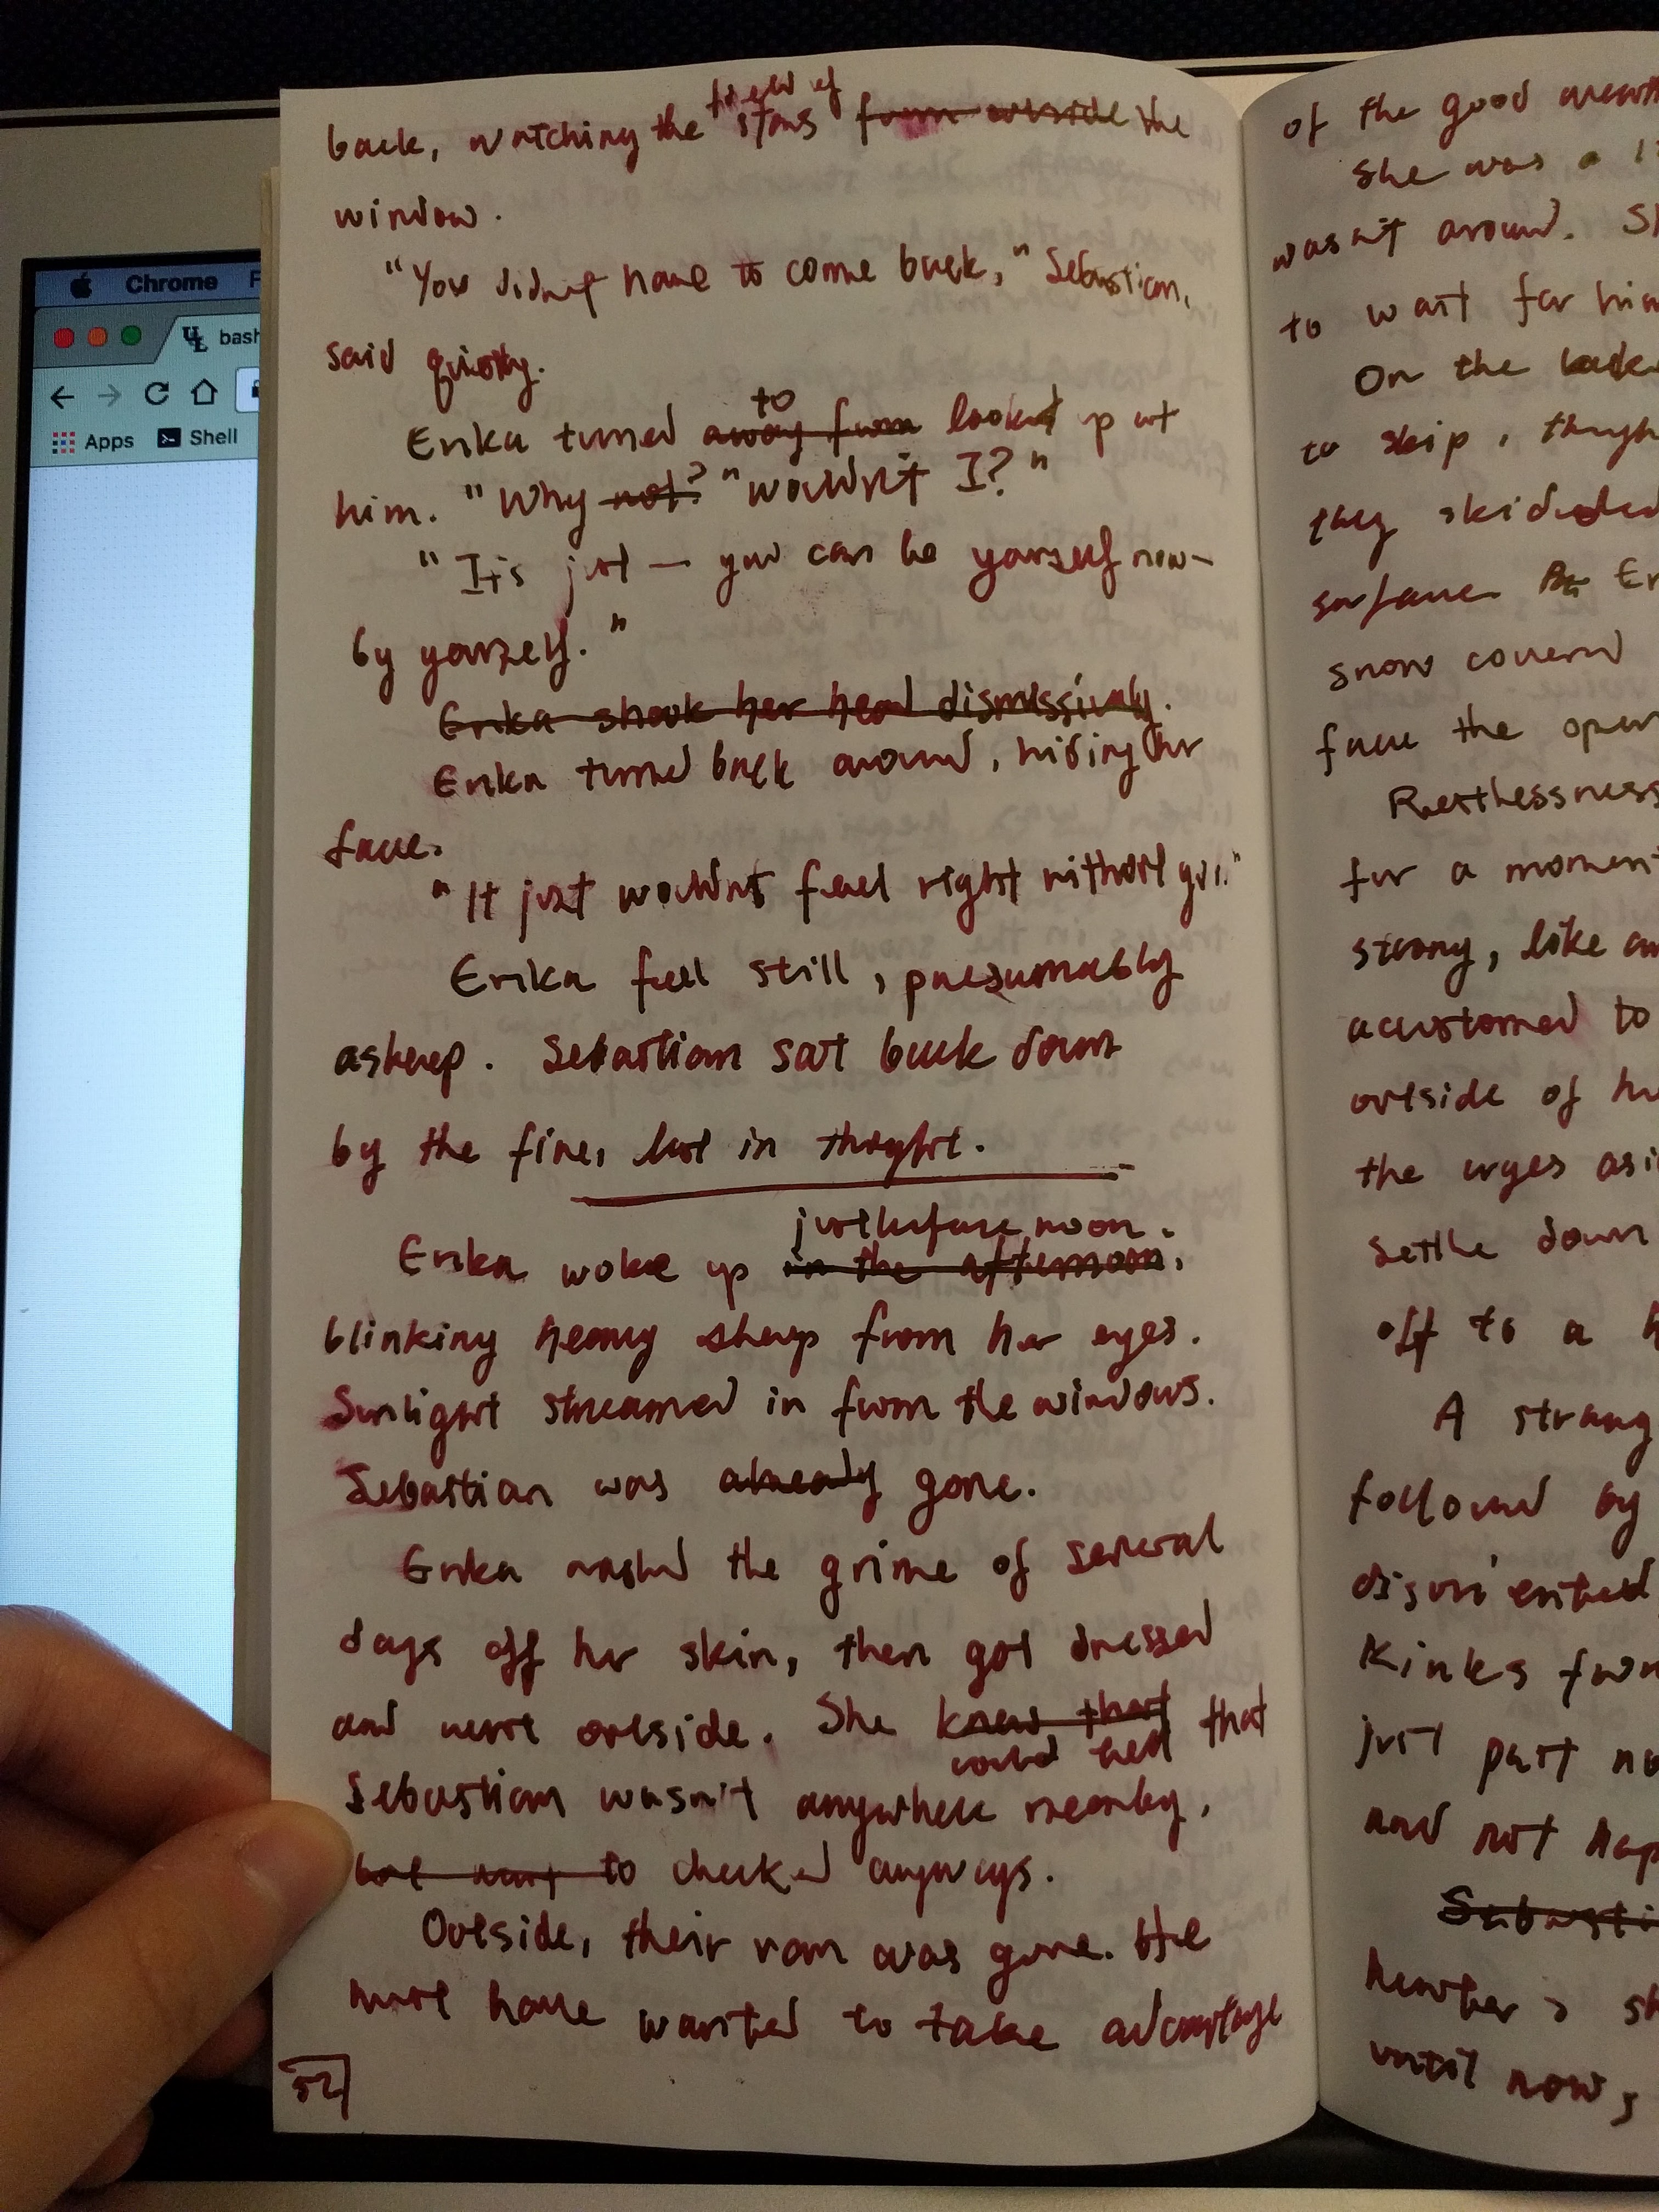 Chrome F
bash
Apps Shell
view of
back, watching the stars from outside the
window.
"You didn't have to come back," Sebastian
said quietly.
to
Erika turned away from looked up at
him. "Why not?" "wouldn't I?"
"It's just — you can be yourself now—
by yourself."
Erika shook her head dismissively.
Erika turned back around, hiding her
face.
"It just wouldn't feel right without you."
Erika fell still, presumably
asleep. Sebastian sat back down
by the fire, lost in thought.
just before noon.
Erika woke up in the afternoon,
blinking heavy sleep from her eyes.
Sunlight streamed in from the windows.
Sebastian was already gone.
Erika washed the grime of several
days off her skin, then got dressed
and went outside. She knew that that
could feel
Sebastian wasn't anywhere nearby,
but went to checked anyways.
Outside, their ram was gone. He
must have wanted to take advantage
52
of the good
She was a
wasn't around.
to wait for him
On the
to skip, though
they skidded
surface
snow covered
face the open
Restlessness
for a moment
strong, like
accustomed to
outside of
the urges
settle down
off to a
A
followed by
disoriented,
kinks from
just past
and not
Sebasti
, sh
until now,